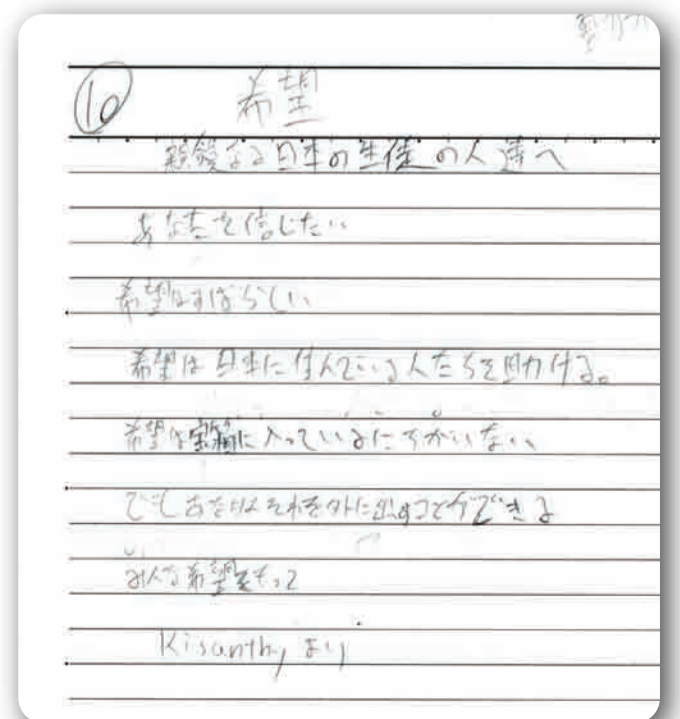 ⑩ 希望
親愛なる日本の生徒の人達へ
あなたを信じたい
希望はすばらしい
希望は日本に住んでいる人たちを助ける。
希望は宝箱に入っているにちがいない
でもあなたはそれを外に出すことができる
みんな希望をもって
Kisanthy より